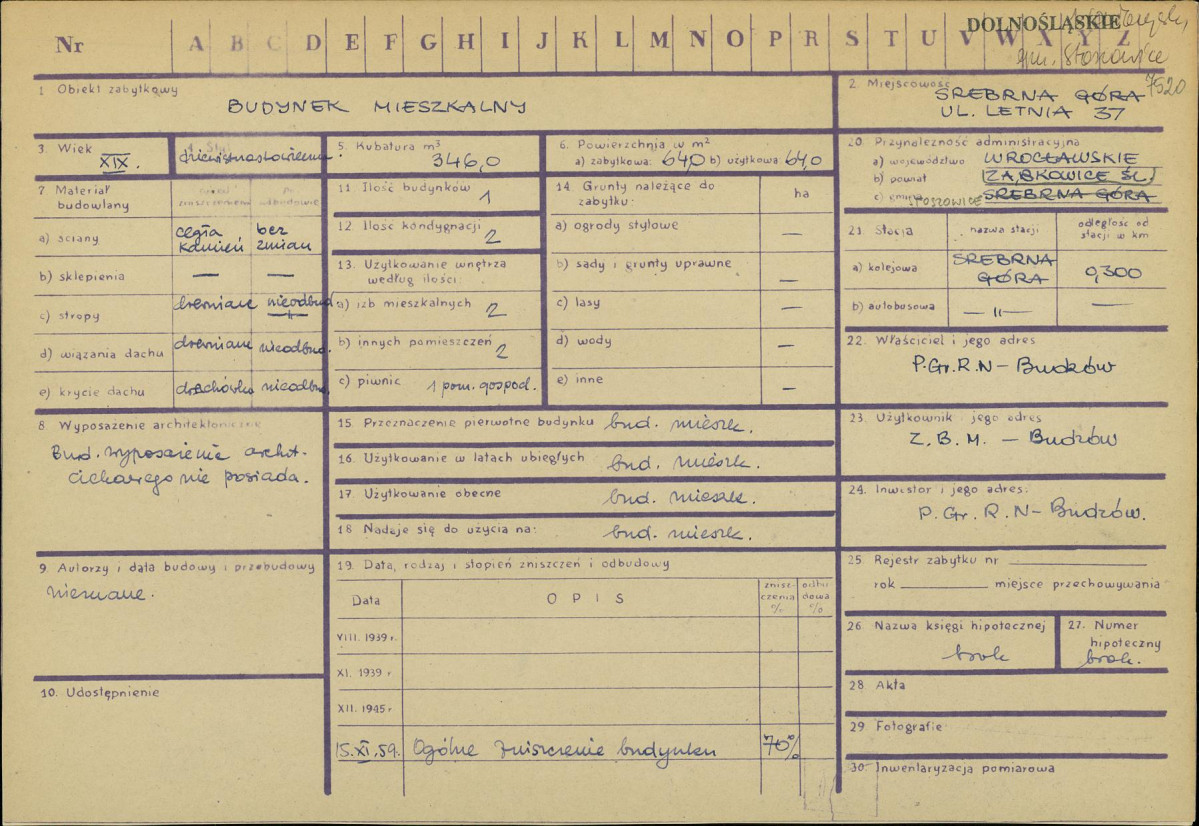 DOLNOŚLĄSKIE
Nr A B C D E F G H I J K L M N O P R S T U V W X Y Z
gm. Stoszowice
7520
1 Obiekt zabytkowy
BUDYNEK MIESZKALNY
2. Miejscowość
SREBRNA GÓRA
UL. LETNIA 37
3. Wiek
XIX.
4. Styl
dziewiętnastowieczny.
5. Kubatura m³
346,0
6. Powierzchnia w m²
a) zabytkowa: 64,0 b) użytkowa: 64,0
20 Przynależność administracyjna
a) województwo WROCŁAWSKIE
b) powiat ZĄBKOWICE ŚL.
c) gmina SREBRNA GÓRA
7 Materiał budowlany
przed zniszczeniem
po odbudowie
a) ściany cegła kamień bez zmian
b) sklepienia — —
c) stropy drewniane nieodbud.
d) wiązania dachu drewniane nieodbud.
e) krycie dachu dachówka nieodbud.
11 Ilość budynków 1
12 Ilość kondygnacji 2
13. Użytkowanie wnętrza
według ilości
a) izb mieszkalnych 2
b) innych pomieszczeń 2
c) piwnic 1 pom. gospod.
14. Grunty należące do
zabytku: ha
a) ogrody stylowe —
b) sady i grunty uprawne —
c) lasy —
d) wody —
e) inne —
21. Stacja nazwa stacji odległość od
stacji w km
a) kolejowa SREBRNA
GÓRA 0,300
b) autobusowa — " — —
22. Właściciel i jego adres
P.Gr.R.N – Budzów
8 Wyposażenie architektoniczne
Bud. wyposażenia archit.
ciekawego nie posiada.
15. Przeznaczenie pierwotne budynku bud. mieszk.
16. Użytkowanie w latach ubiegłych bud. mieszk.
17 Użytkowanie obecne bud. mieszk.
18 Nadaje się do użycia na: bud. mieszk.
23. Użytkownik i jego adres
Z.B.M. – Budzów
24. Inwestor i jego adres:
P.Gr.R.N – Budzów.
9. Autorzy i data budowy i przebudowy
nieznane.
19. Data, rodzaj i stopień zniszczeń i odbudowy
Data OPIS znisz-
czenia
% odbu-
dowa
%
VIII. 1939 r.
XI. 1939 r
XII. 1945 r
15.XI.59. Ogólne zniszczenie budynku 70%
25. Rejestr zabytku nr
rok miejsce przechowywania
26 Nazwa księgi hipotecznej
brak
27. Numer
hipoteczny
brak.
10. Udostępnienie
28 Akta
29 Fotografie
30. Inwentaryzacja pomiarowa